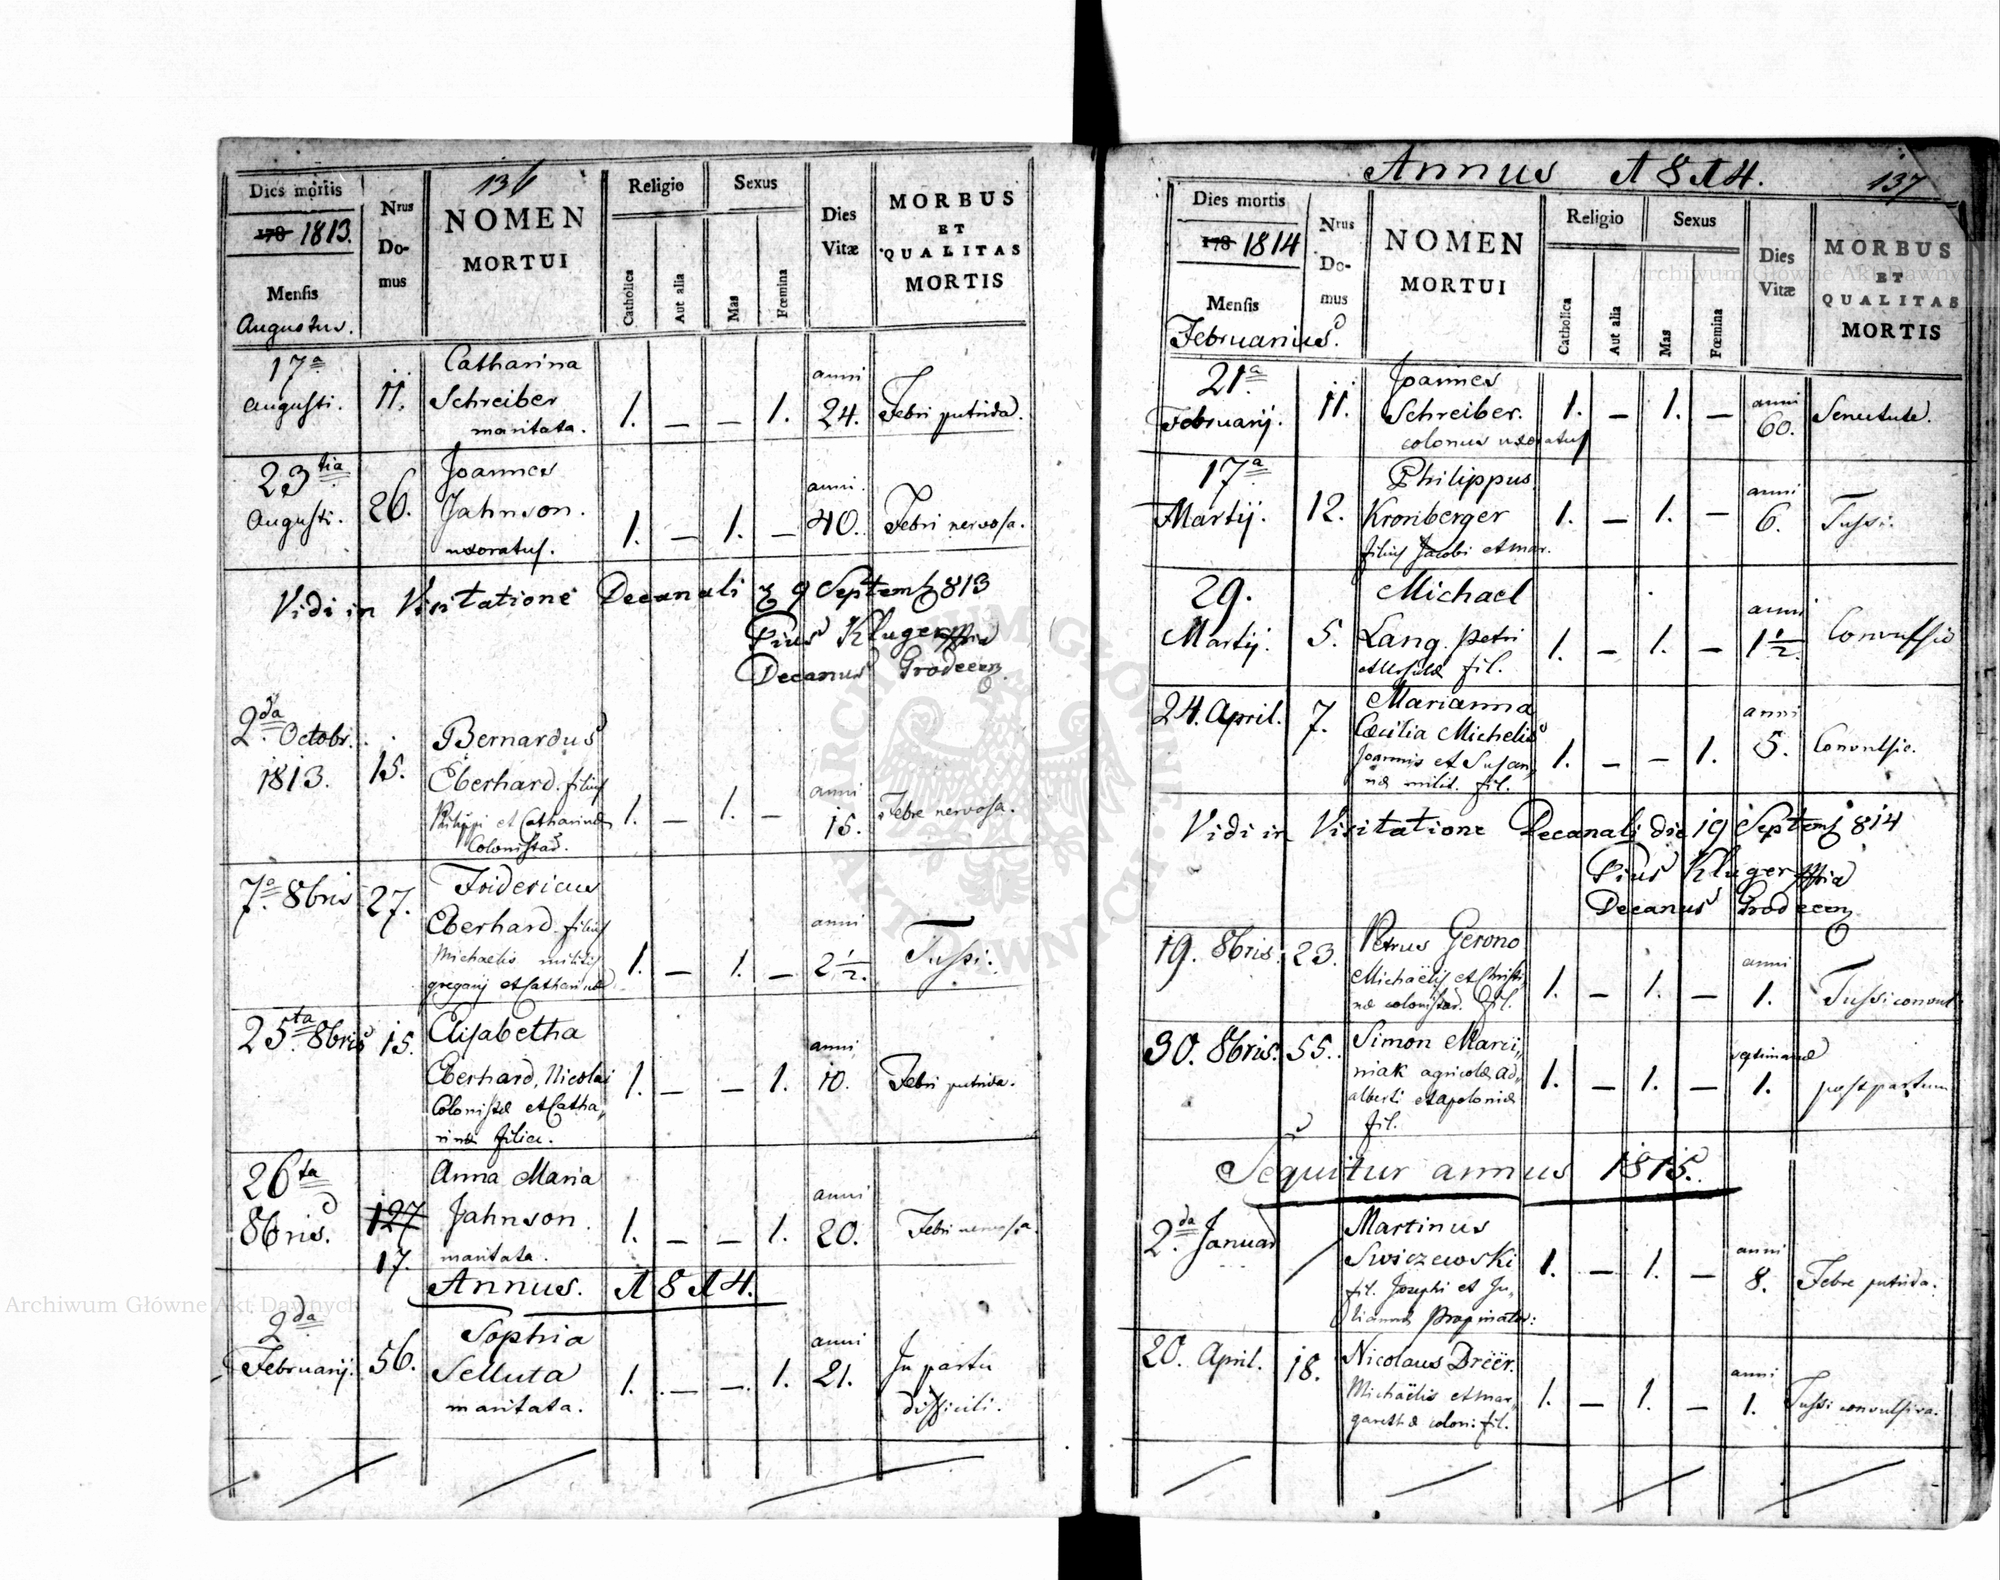 136
Dies mortis
178 1813.
Mensis
Augustus.
Nrus
Do-
mus
NOMEN
MORTUI
Religio
Catholica
Aut alia
Sexus
Mas
Fœmina
Dies
Vitæ
MORBUS
ET
QUALITAS
MORTIS
17a Augusti. 11. Catharina
Schreiber
maritata. 1. — — 1. anni 24. Febri putrida.
23tia Augusti. 26. Joannes
Jahnson.
uxoratus. 1. — 1. — anni 40. Febri nervosa.
Vidi in Visitatione Decanali 9 Septemb 813
Pius Kluger
Decanus Grodecen
2da Octobr. 1813. 15. Bernardus
Eberhard filius
Philippi et Catharinæ
Colonistar. 1. — 1. — anni 15. Febre nervosa.
7a 8bris 27. Fridericus
Eberhard filius
Michaelis militis
gregarij et Catharinæ 1. — 1. — anni 2 1/2. Tussi.
25ta 8bris 15. Elisabetha
Eberhard, Nicolai
Colonistæ et Catha,,
rinæ filia. 1. — — 1. anni 10. Febri putrida.
26ta 8bris. 127 17. Anna Maria
Jahnson.
maritata. 1. — — 1. anni 20. Febri nervosa.
Annus. 1814.
2da Februarij. 56. Sophia
Selluta
maritata. 1. — — 1. anni 21. In partu
difficili.
Annus 1814.
137
Dies mortis
178 1814
Mensis
Februarius.
Nrus
Do-
mus
NOMEN
MORTUI
Religio
Catholica
Aut alia
Sexus
Mas
Fœmina
Dies
Vitæ
MORBUS
ET
QUALITAS
MORTIS
21a Februarij. 11. Joannes
Schreiber.
colonus uxoratus 1. — 1. — anni 60. Senectute.
17a Martij. 12. Philippus
Kronberger
filius Jacobi et mar. 1. — 1. — anni 6. Tussi.
29. Martij. 5. Michael
Lang. Petri
fil. 1. — 1. — anni 1 1/2. Convulsio
24. April. 7. Marianna
Cæcilia Michelis
Joannis et Susan,,
næ milit. fil. 1. — — 1. anni 5. Convulsio.
Vidi in Visitatione Decanali die 19 Septemb 814
Pius Kluger
Decanus Grodecen
19. 8bris. 23. Petrus Gerono
Michaëlis et Christi,,
næ colonistar. fil. 1. — 1. — anni 1. Tussi convul
30. 8bris. 55. Simon Marci,,
niak agricolæ Ad,,
alberti et Apoloniæ
fil. 1. — 1. — septimanæ 1. post partum
Sequitur annus 1815.
2da Januar Martinus
Swiczewski
fil. Josephi et Ju,,
liannæ Propinator: 1. — 1. — anni 8. Febre putrida.
20. April. 18. Nicolaus Dreër.
Michaëlis et Mar,,
garethæ coloni. fil. 1. — 1. — anni 1. Tussi convulsiva.
Archiwum Główne Akt Dawnych
Archiwum Główne Akt Dawnych
ARCHIWUM GŁÓWNE AKT DAWNYCH